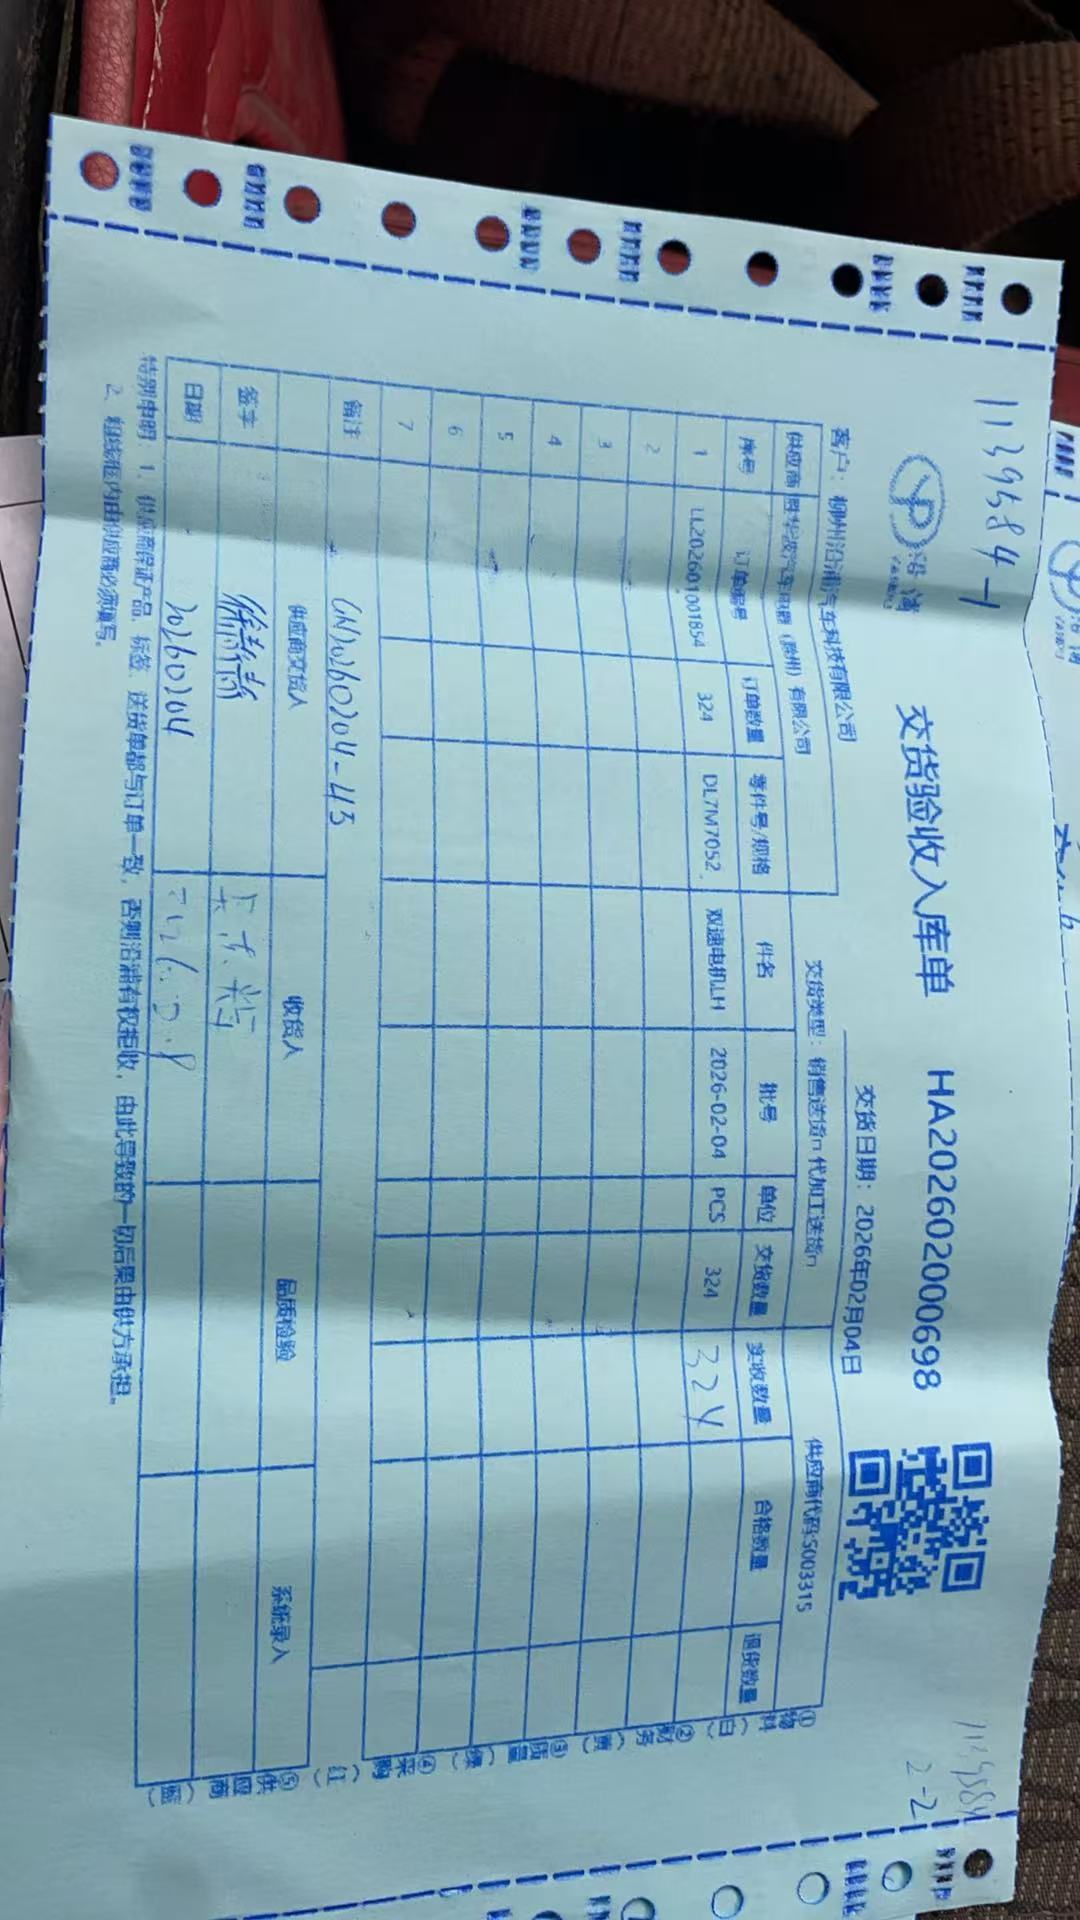 1139584-1
沿浦
交货验收入库单 HA202602000698
交货日期：2026年02月04日
客户：柳州沿浦汽车科技有限公司
供应商 胜华波汽车电器（滁州）有限公司 交货类型：销售送货n 代加工送货n 供应商代码:S003315
序号 订单编号 订单数量 零件号/规格 件名 批号 单位 交货数量 实收数量 合格数量 退货数量
1 LL202601001854 324 DL7M7052 双速电机LH 2026-02-04 PCS 324 324
2
3
4
5
6
7
备注 CN20260204-43
供应商交货人 收货人 品质检验 系统录入
签字
日期 20260204
特别申明：1、供应商保证产品、标签、送货单都与订单一致，否则沿浦有权拒收，由此导致的一切后果由供方承担。
2、粗线框内由供应商必须填写。
①物料（白）②财务（黄）③质量（绿）④采购（红）⑤供应商（蓝）
1139584
2-2